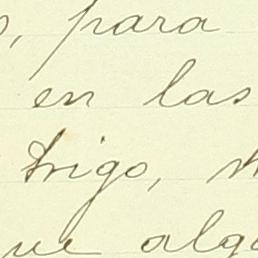 , para
en las
trigo,
que alg